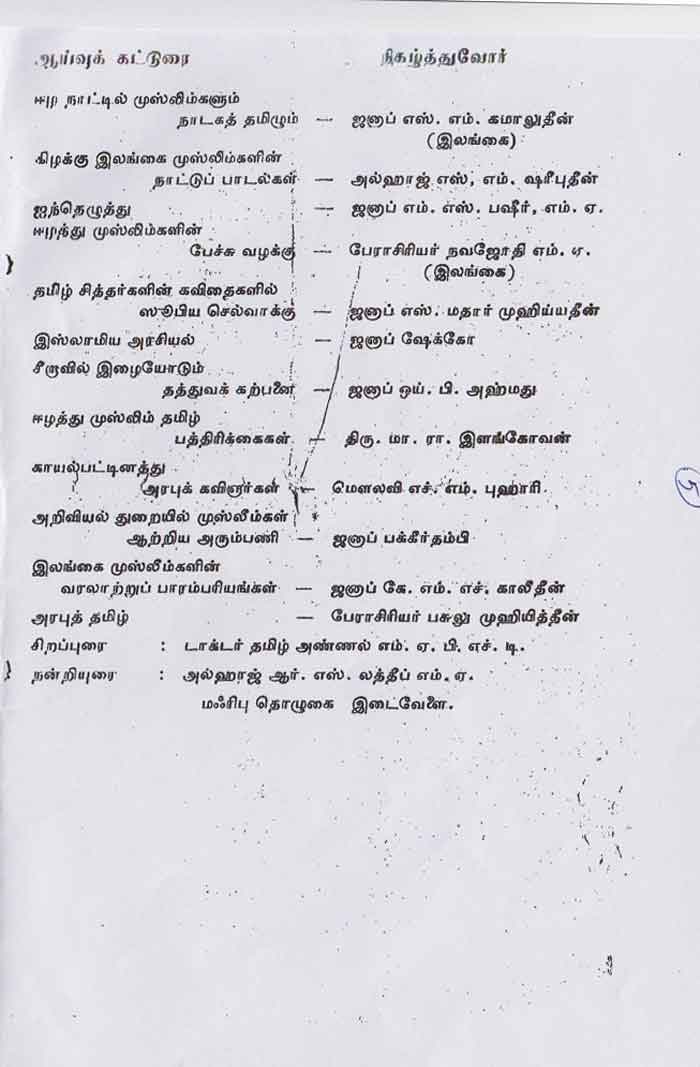 ஆய்வுக் கட்டுரை நிகழ்த்துவோர்
ஈழ நாட்டில் முஸ்லிம்களும்
நாடகத் தமிழும் — ஜனாப் எஸ். எம். கமாலுதீன்
(இலங்கை)
கிழக்கு இலங்கை முஸ்லிம்களின்
நாட்டுப் பாடல்கள் — அல்ஹாஜ் எஸ், எம். ஷரீபுதீன்
ஐந்தெழுத்து — ஜனாப் எம். எஸ். பஷீர், எம். ஏ.
ஈழத்து முஸ்லிம்களின்
பேச்சு வழக்கு — பேராசிரியர் நவஜோதி எம். ஏ.
(இலங்கை)
தமிழ் சித்தர்களின் கவிதைகளில்
ஸூபிய செல்வாக்கு — ஜனாப் எஸ். மதார் முஹிய்யதீன்
இஸ்லாமிய அரசியல் — ஜனாப் ஷேக்கோ
சீறாவில் இழையோடும்
தத்துவக் கற்பனை — ஜனாப் ஒய். பி. அஹ்மது
ஈழத்து முஸ்லிம் தமிழ்
பத்திரிக்கைகள் — திரு. மா. ரா. இளங்கோவன்
காயல்பட்டினத்து
அரபுக் கவிஞர்கள் — மௌலவி எச். எம். புஹாரி
அறிவியல் துறையில் முஸ்லீம்கள்
ஆற்றிய அரும்பணி — ஜனாப் பக்கீர்தம்பி
இலங்கை முஸ்லீம்களின்
வரலாற்றுப் பாரம்பரியங்கள் — ஜனாப் கே. எம். எச். காலிதீன்
அரபுத் தமிழ் — பேராசிரியர் பசுலு முஹியித்தீன்
சிறப்புரை : டாக்டர் தமிழ் அண்ணல் எம். ஏ. பி. எச். டி.
நன்றியுரை : அல்ஹாஜ் ஆர். எஸ். லத்தீப் எம். ஏ.
மஃரிபு தொழுகை இடைவேளை.